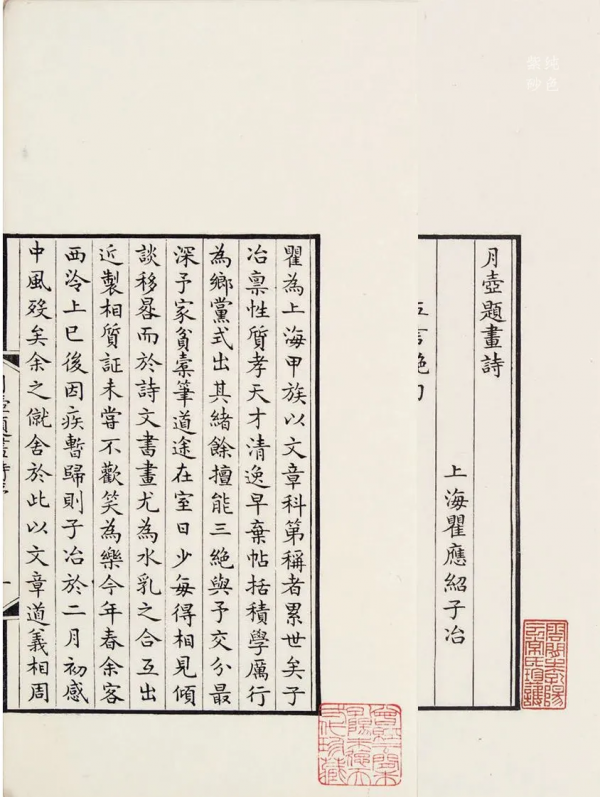 纯色
紫砂
月壺題畫詩
上海瞿應紹子冶
言絕
瞿為上海甲族以文章科第稱者累世矣子
冶禀性質孝天才清逸早棄帖括積學厲行
為鄉黨式出其緒餘擅能三絕與予交分最
深予家貧橐筆道途在室日少每得相見傾
談移晷而於詩文書畫尤為水乳之合互出
近製相質証未甞不歡笑為樂今年春余客
西泠上巳後因疾暫歸則子冶於二月初感
中風歿矣余之僦舍於此以文章道義相周